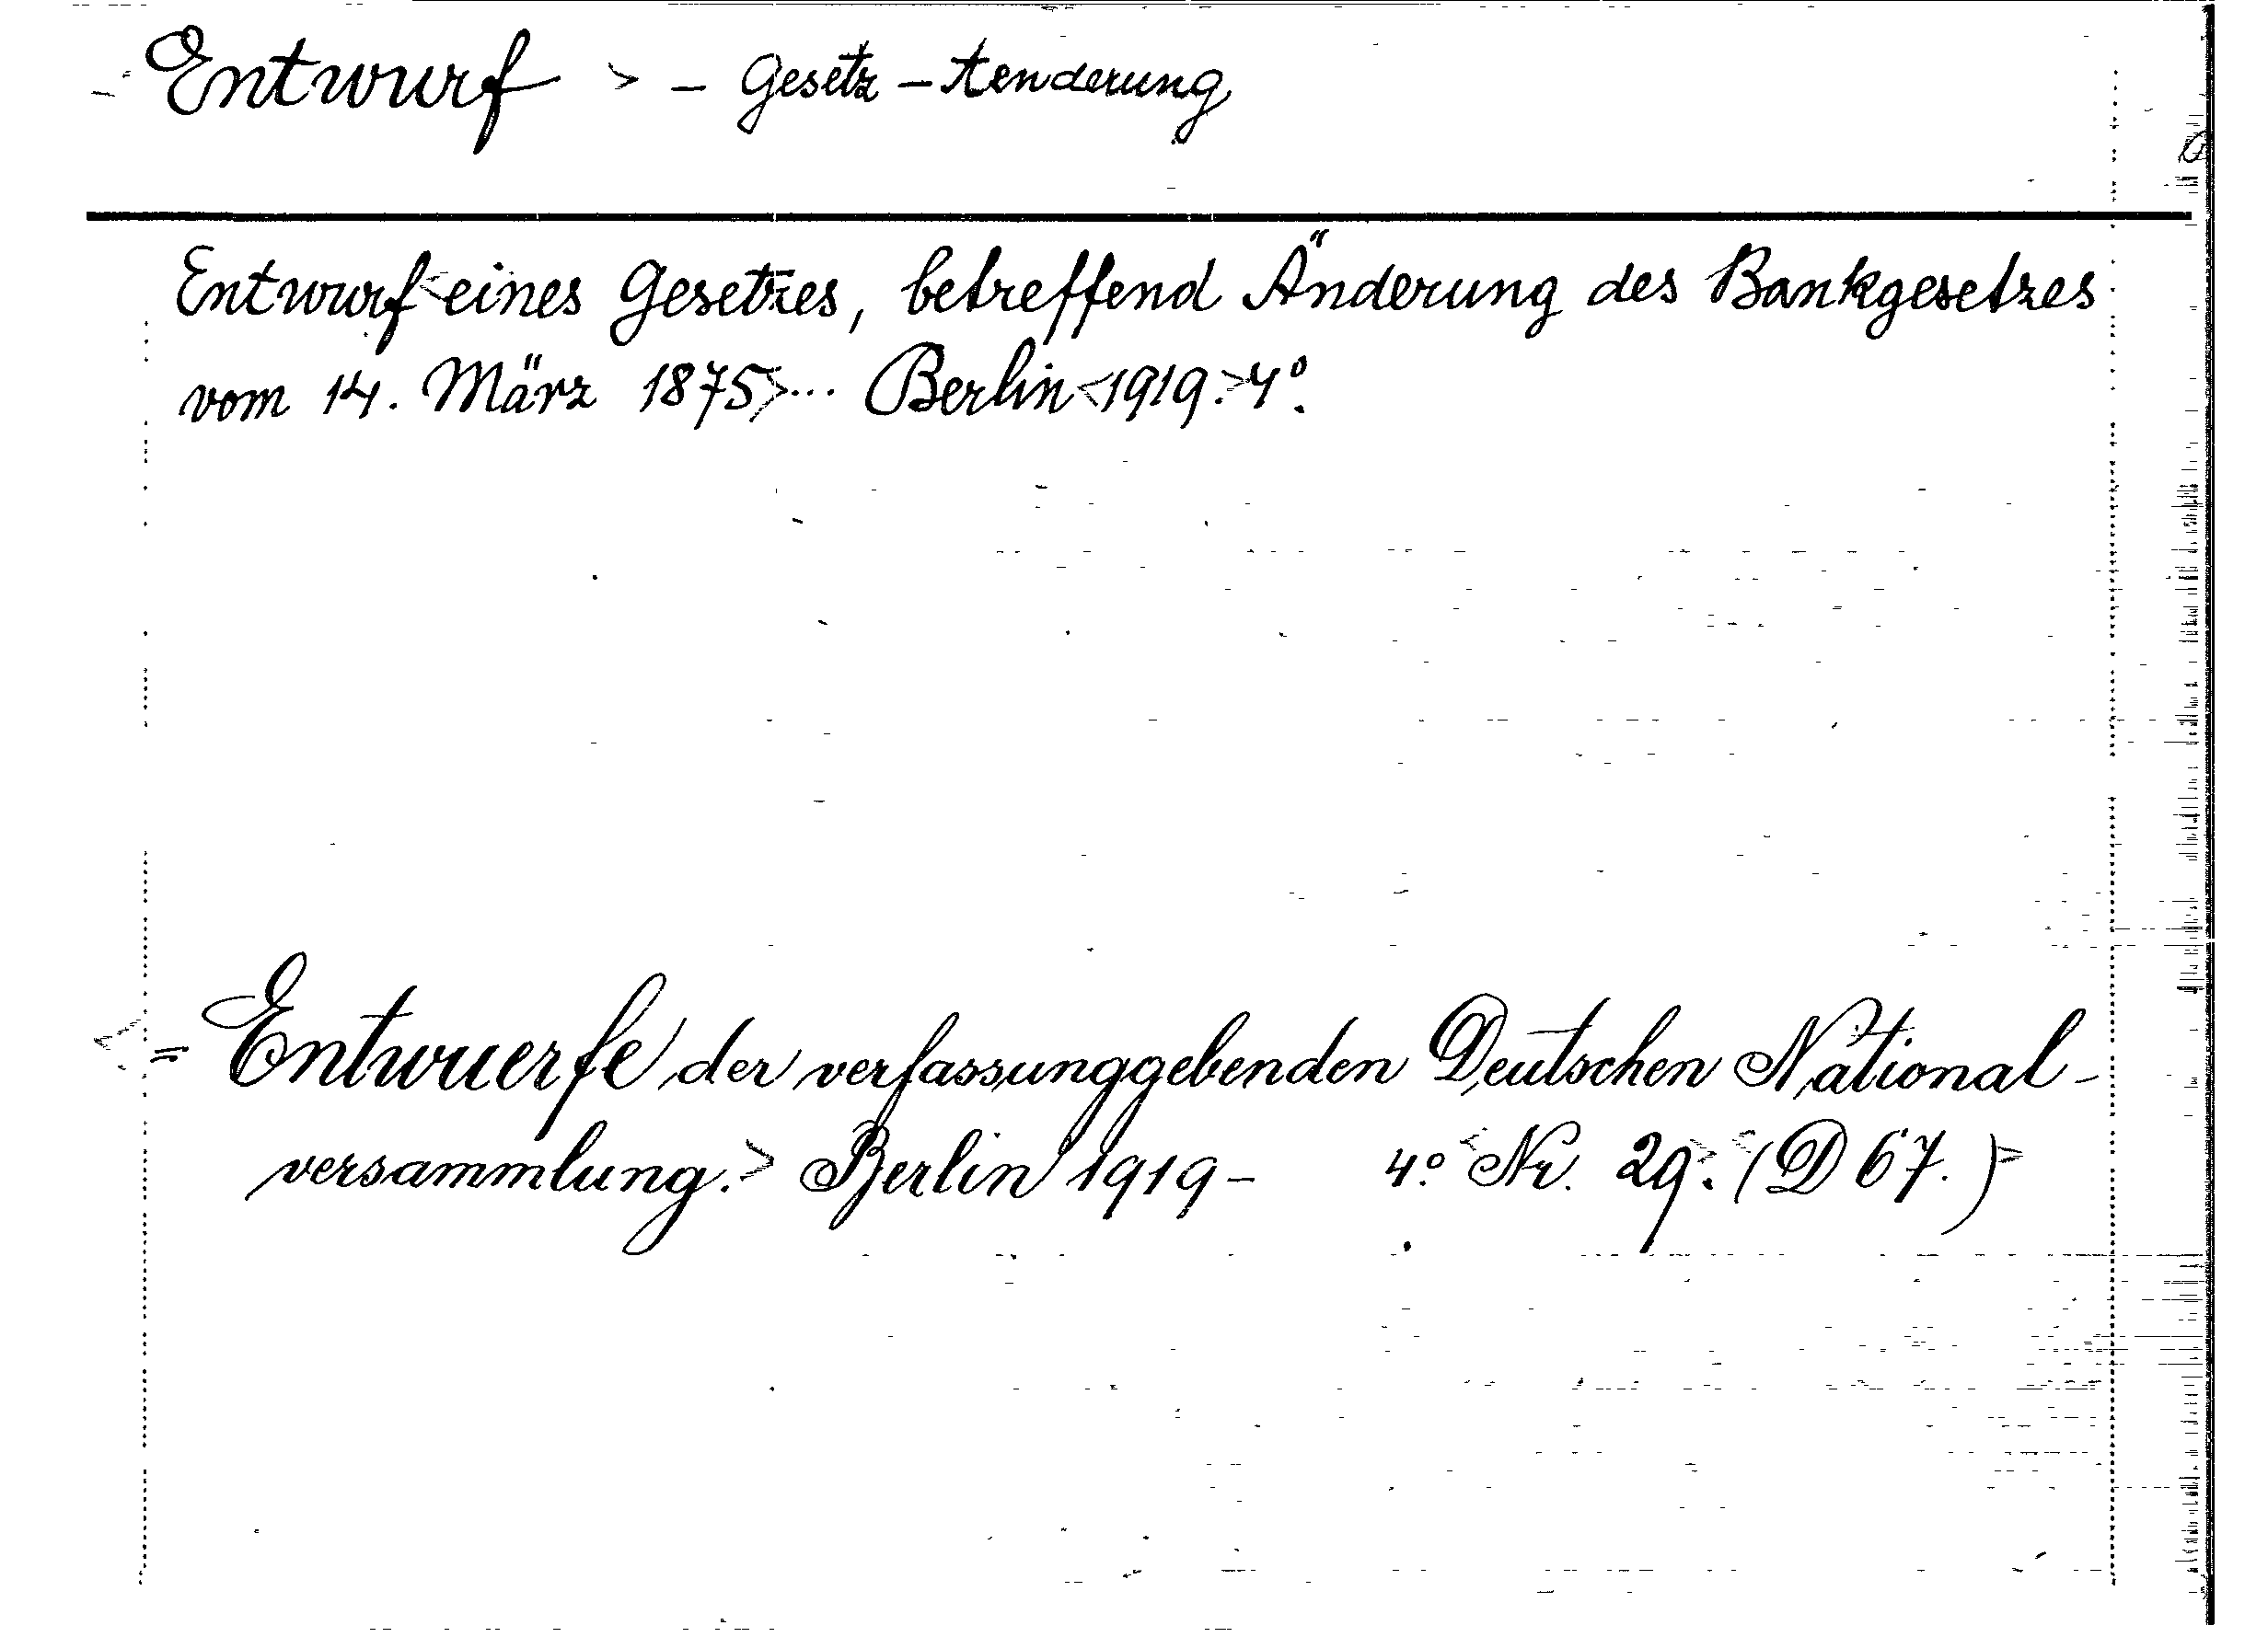 Entwurf > - Gesetz - Aenderung
Entwurf < eines Gesetzes, betreffend Änderung des Bankgesetzes
vom 14. März 1875> ... Berlin <1919.> 4°.
< = Entwuerfe der verfassunggebenden Deutschen National-
versammlung.> Berlin 1919- 4°. <Nr. 29.> <(D 67.)>